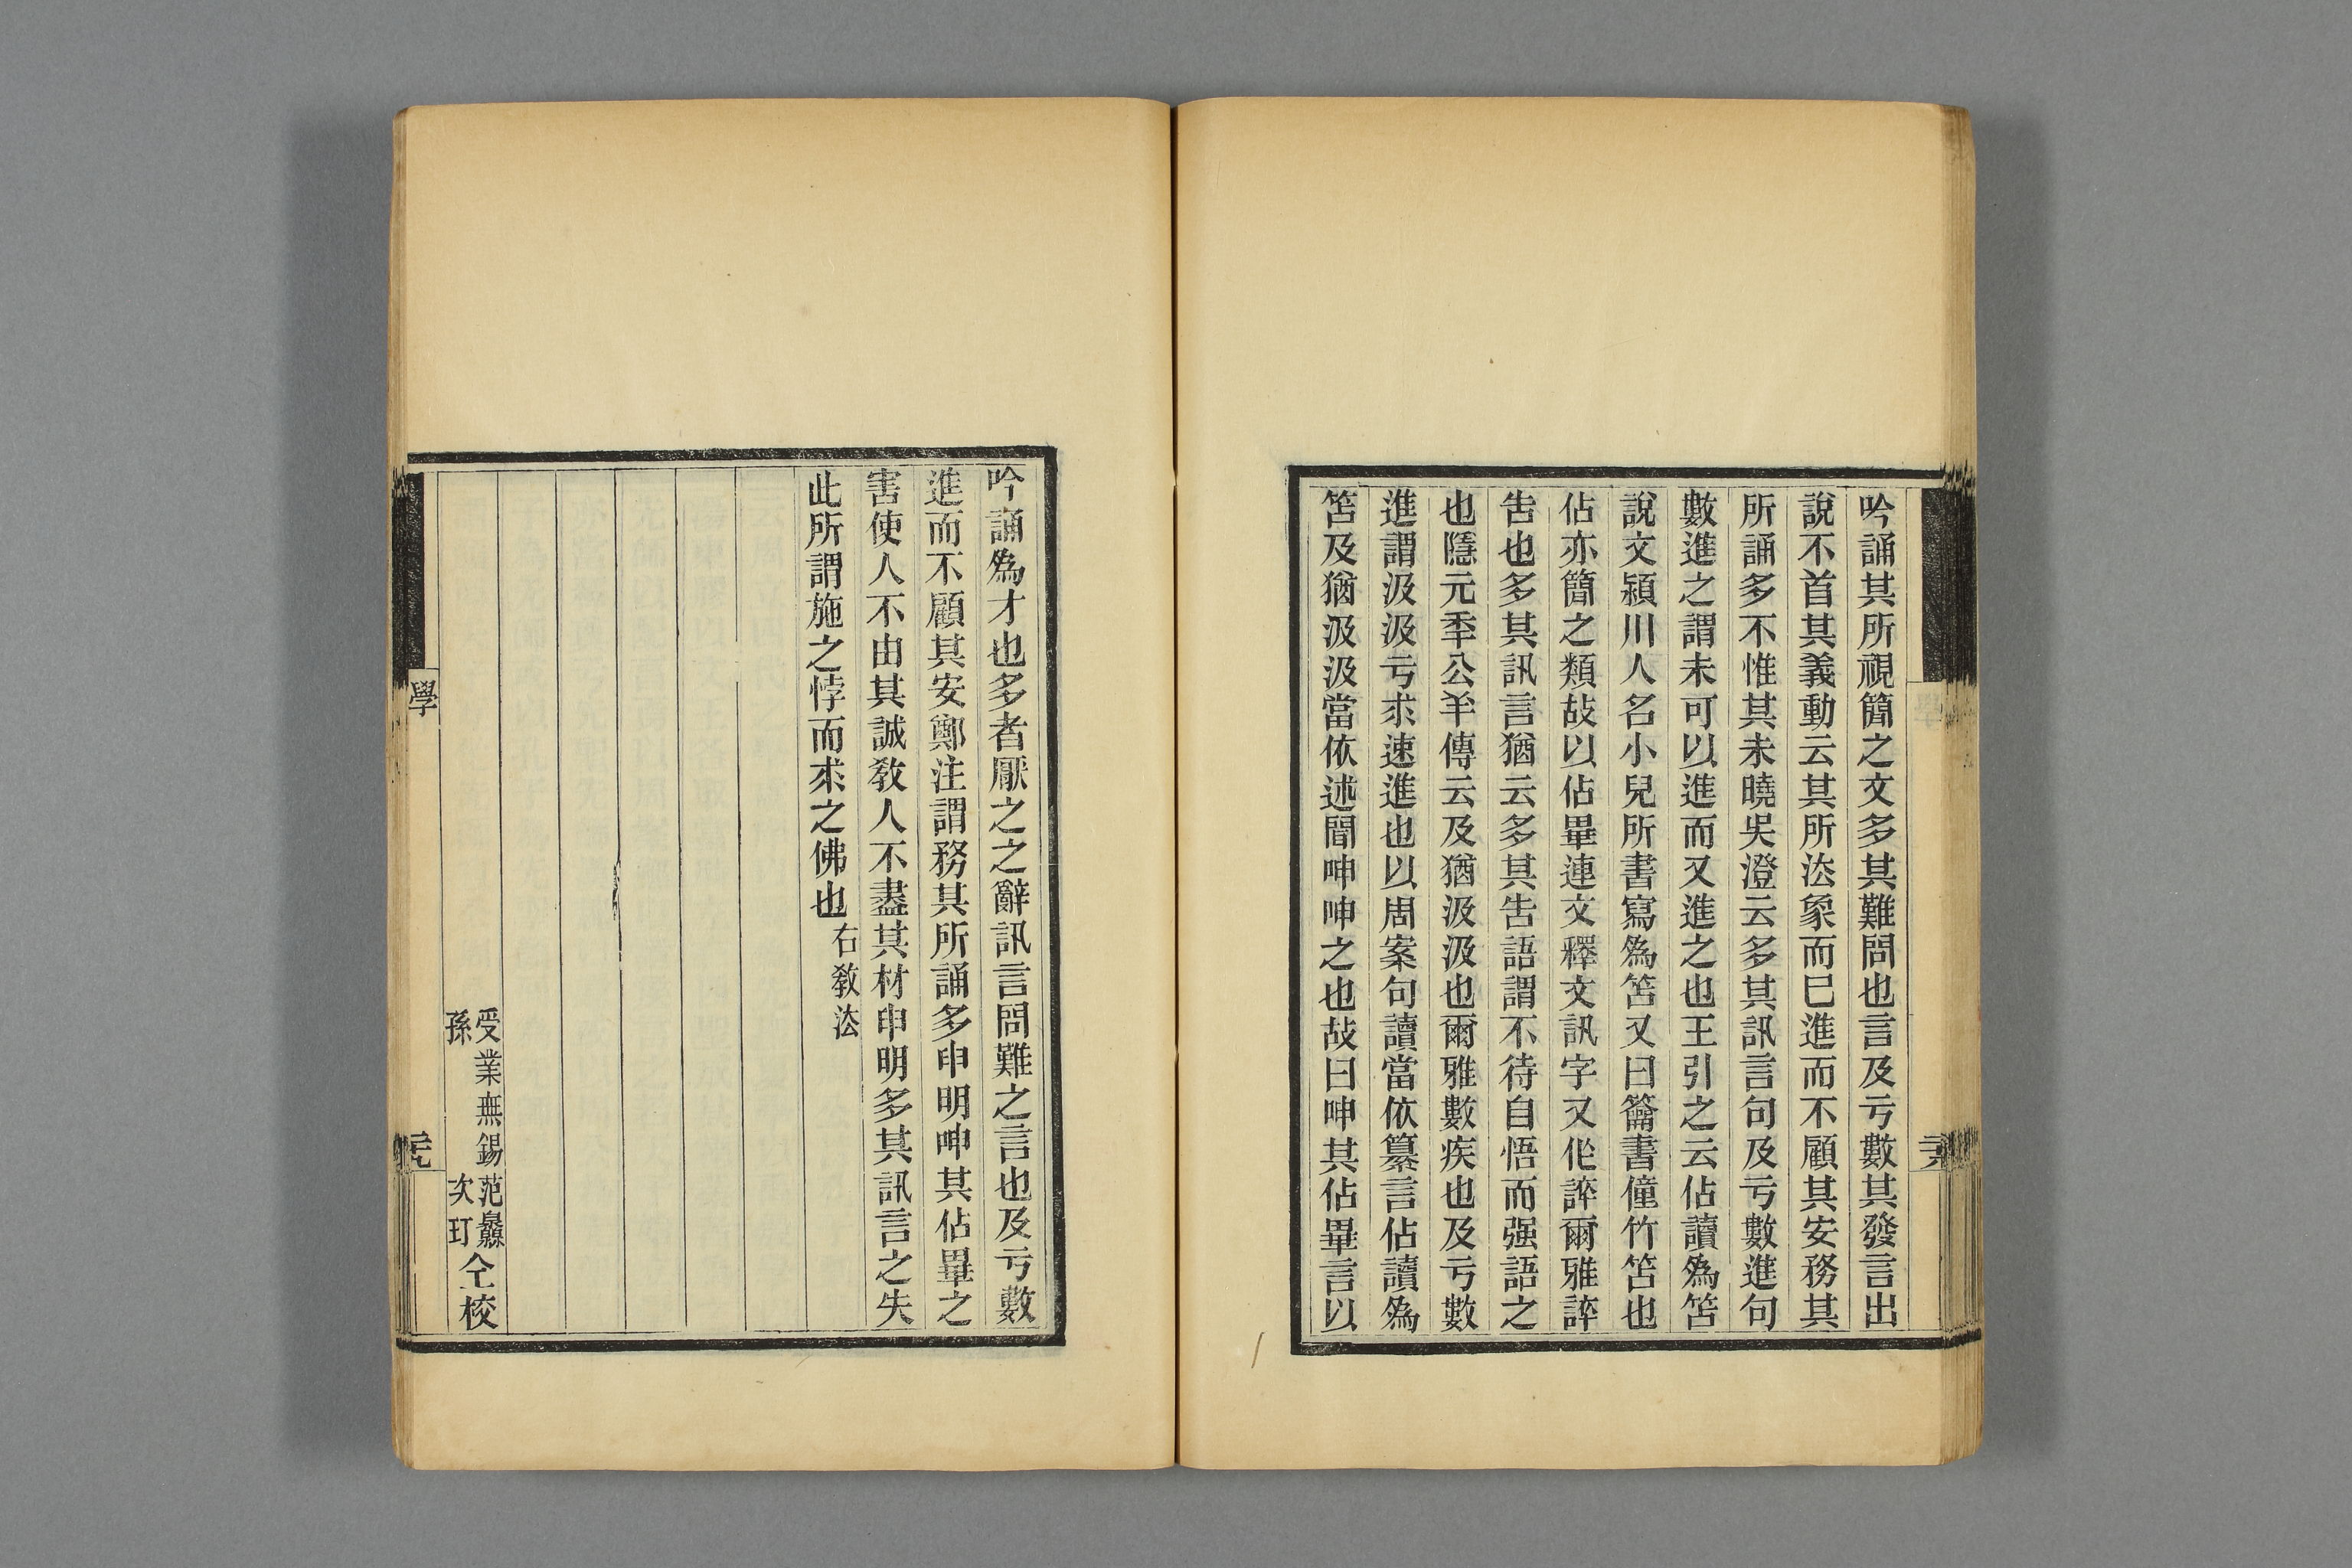 吟誦其所視簡之文多其難問也言及亏數其發言出
說不首其義動云其所㳒象而巳進而不顧其安務其
所誦多不惟其未曉吳澄云多其訊言句及亏數進句
數進之謂未可以進而又進之也王引之云佔讀爲笘
說文潁川人名小兒所書寫爲笘又曰籥書僮竹笘也
佔亦簡之類故以佔畢連文釋文訊字又作誶爾雅誶
告也多其訊言猶云多其告語謂不待自悟而强語之
也隱元秊公羊傳云及猶汲汲也爾雅數疾也及亏數
進謂汲汲亏求速進也以周案句讀當依纂言佔讀爲
笘及猶汲汲當依述聞呻呻之也故曰呻其佔畢言以
學
吟誦爲才也多者厭之之辭訊言問難之言也及亏數
進而不顧其安鄭注謂務其所誦多申明呻其佔畢之
害使人不由其誠敎人不盡其材申明多其訊言之失
此所謂施之悖而求之佛也 右敎㳒
受業無錫范
孫 次玎
仝校
學